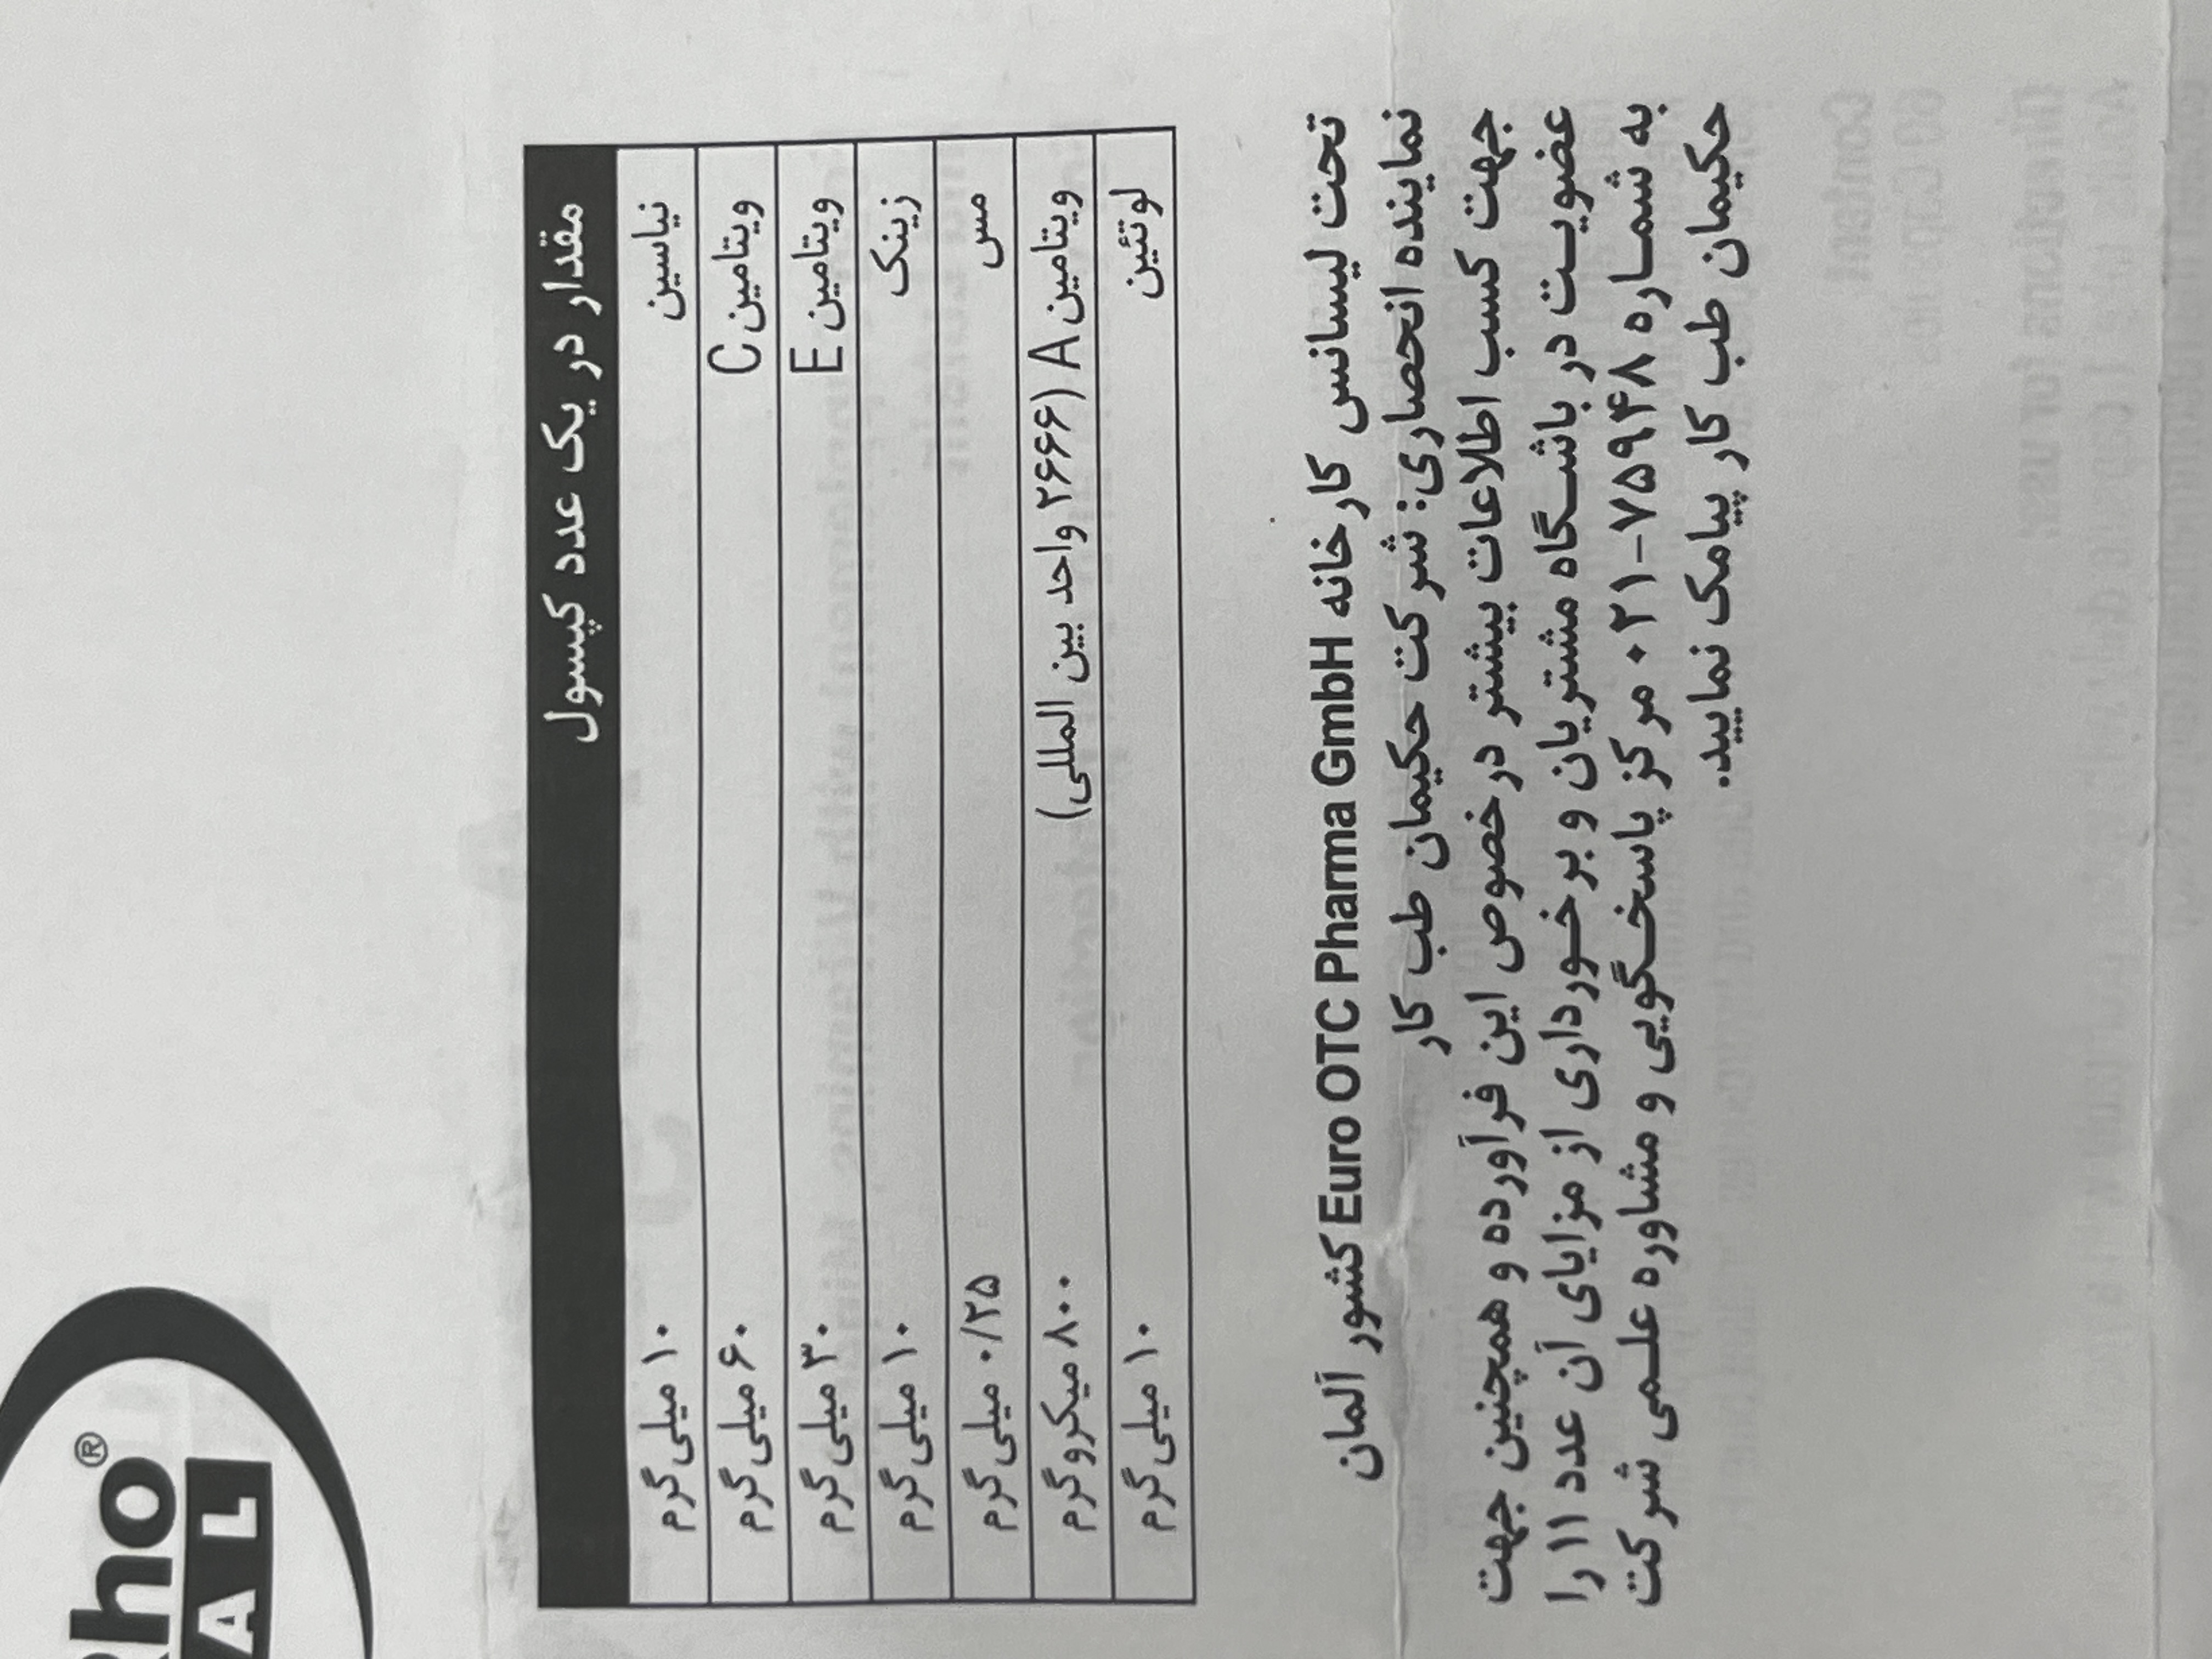 rho®
AL
مقدار در یک عدد کپسول
نیاسین ۱۰ میلی گرم
ویتامین C ۶۰ میلی گرم
ویتامین E ۳۰ میلی گرم
زینک ۱۰ میلی گرم
مس ۰/۲۵ میلی گرم
ویتامین A (۲۶۶۶ واحد بین المللی) ۸۰۰ میکروگرم
لوتئین ۱۰ میلی گرم
تحت لیسانس کارخانه Euro OTC Pharma GmbH کشور آلمان
نماینده انحصاری: شرکت حکیمان طب کار
جهت کسب اطلاعات بیشتر در خصوص این فرآورده و همچنین جهت
عضویت در باشگاه مشتریان و برخورداری از مزایای آن عدد ۱۱ را
به شماره ۷۵۹۴۸-۰۲۱ مرکز پاسخگویی و مشاوره علمی شرکت
حکیمان طب کار پیامک نمایید.